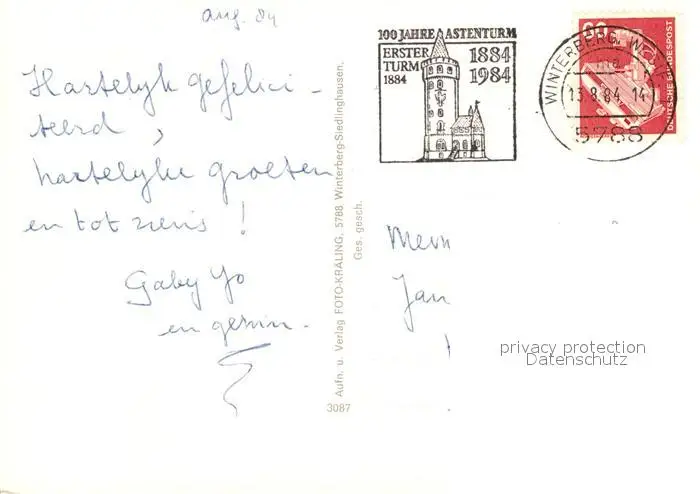 aug. 84
Hartelyk gefelici-
teerd,
hartelyke groeten
en tot ziens!
Gaby Yo
en gezin.
Aufn. u. Verlag FOTO-KRÄLING, 5788 Winterberg-Siedlinghausen.
Ges. gesch.
3087
100 JAHRE ASTENTURM
ERSTER
TURM
1884
1884
1984
WINTERBERG, W
13.8.84-14
5788
60
DEUTSCHE BUNDESPOST
Jan
privacy protection
Datenschutz